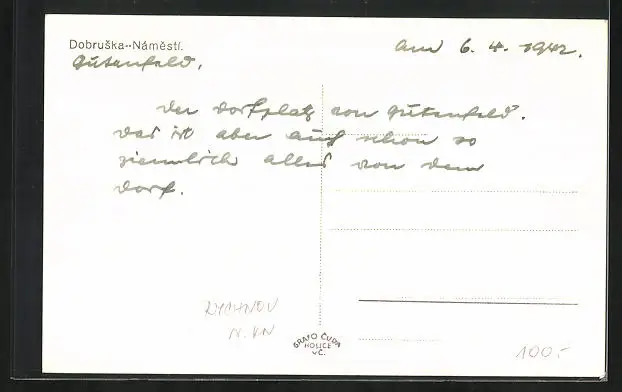 Dobruška--Náměstí.
Gutenfeld,
am 6. 4. 1942.
Der Dorfplatz von Gutenfeld.
Das ist aber auch schon so
ziemlich alles von dem
Dorf.
RYCHNOV
N. KN
GRAFO ČUDA
HOLICE
v Č.
100.-